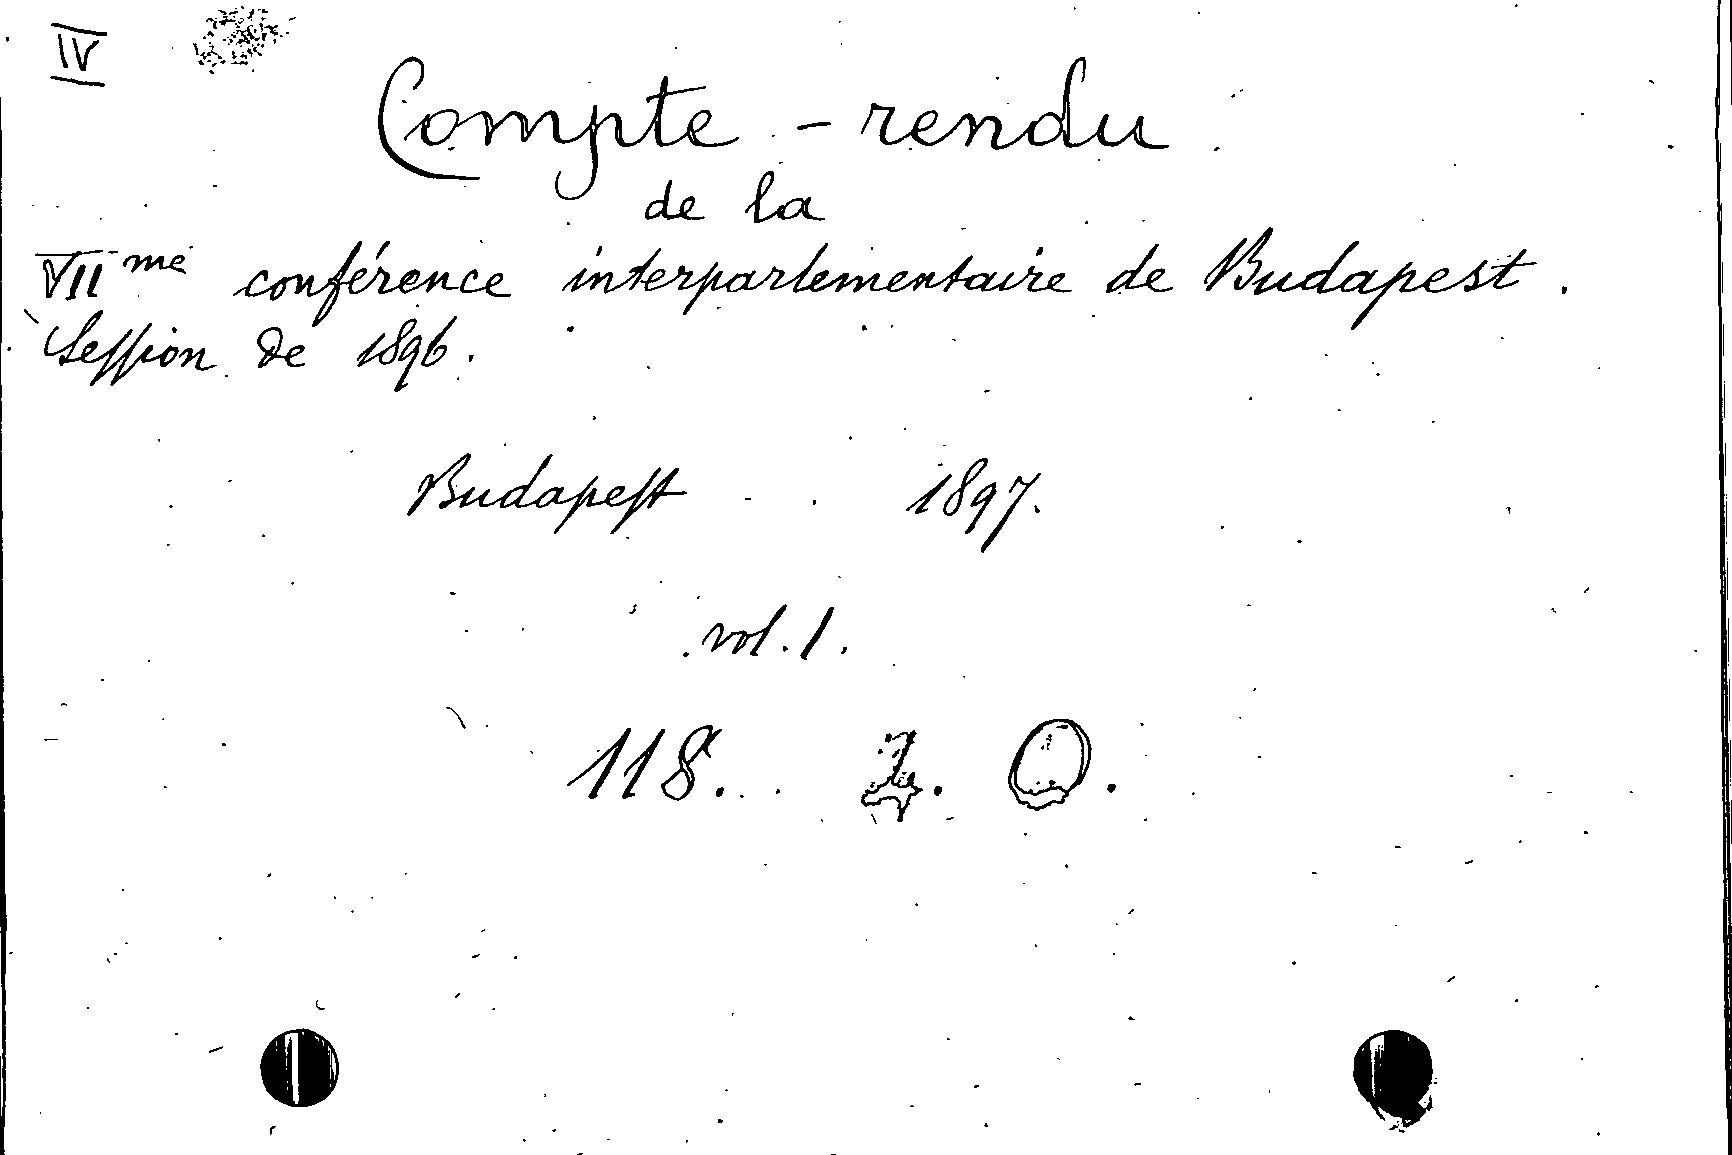 IV
Compte-rendu
de la
VIIme conférence interparlementaire de Budapest.
Session de 1896.
Budapest 1897.
vol. 1.
118. O.